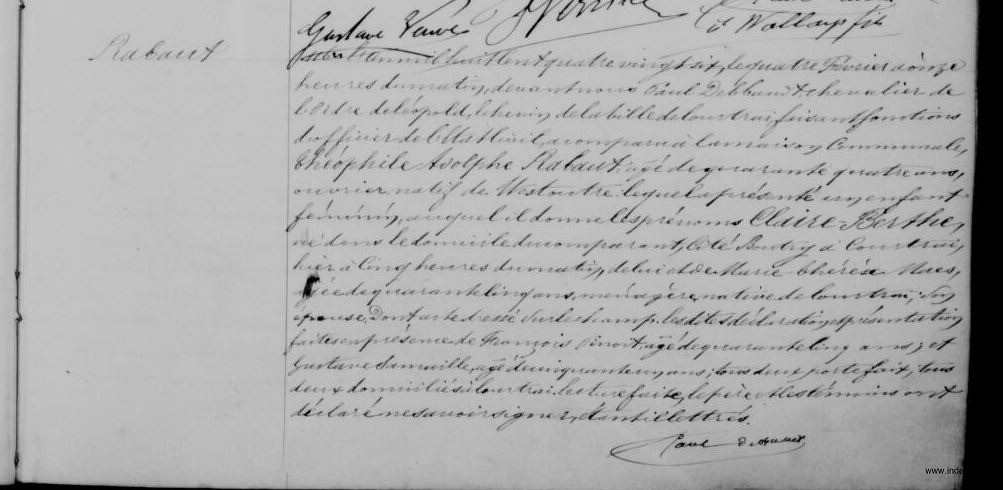 Gustave
Rabaut
L'an mil huit cent quatre vingt six, le quatre Février à onze
heures du matin, devant nous Paul Debbaudt chevalier de
l'Ordre de Léopold, Echevin de la Ville de Courtrai, faisant fonctions
d'officier de l'Etat Civil, a comparu à la maison Communale,
Théophile Adolphe Rabaut, agé de quarante quatre ans,
ouvrier, natif de Westoutre lequel a présenté un enfant
féminin, auquel il donne les prénoms Claire-Berthe,
né dans le domicile du comparant, Cité à Courtrai,
hier à cinq heures du matin, de lui et de Marie Thérèse Maes,
agée de quarante cinq ans, ménagère, native de Courtrai, son
épouse, dont acte dressé sur le champ, les dites déclaration et présentation
faites en présence de François agé de quarante cinq ans, et
Gustave agé de cinquante un ans, tous deux portefaix, tous
deux domiciliés à Courtrai. Lecture faite, le père et les témoins ont
déclaré ne savoir signer, étant illettrés.
Paul
www.inde